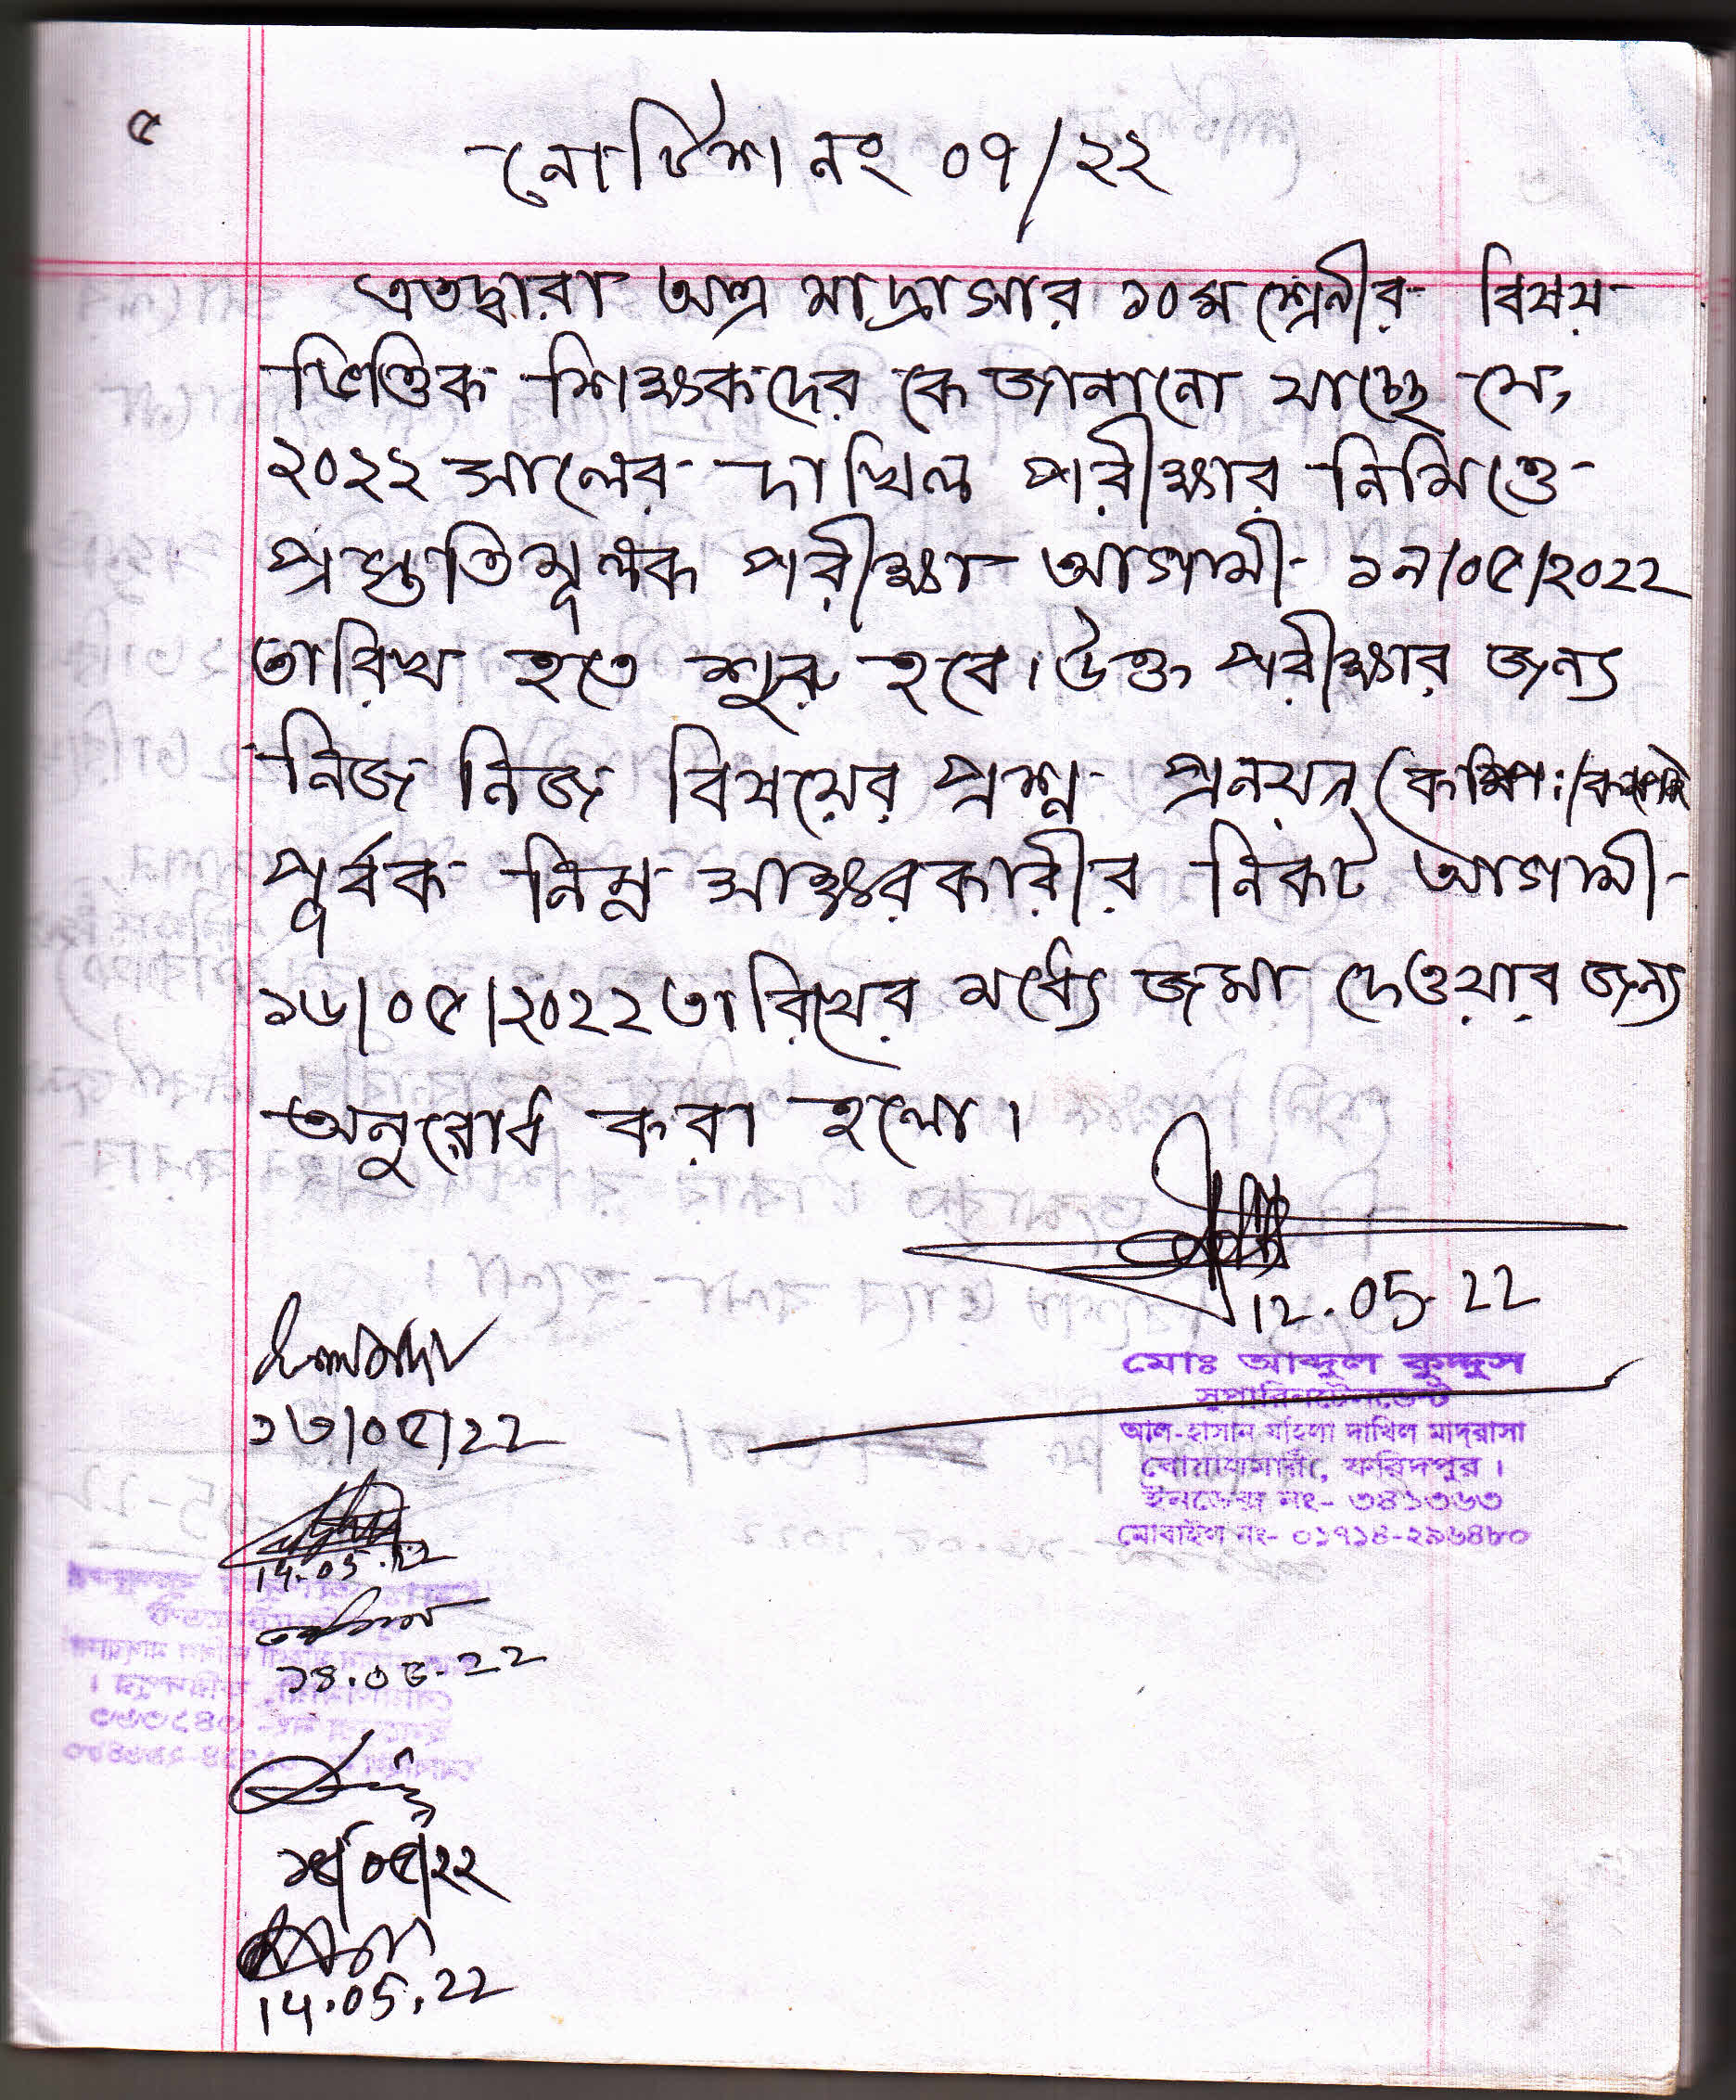 ৫
নোটিশ নং ০৭/২২
এতদ্বারা অত্র মাদ্রাসার ১০ম শ্রেনীর বিষয়
ভিত্তিক শিক্ষকদের কে জানানো যাচ্ছে যে,
২০২২ সালের দাখিল পরীক্ষার নিমিত্তে
প্রস্তুতিমূলক পরীক্ষা আগামী ১৯/০৫/২০২২
তারিখ হতে শুরু হবে। উক্ত পরীক্ষার জন্য
নিজ নিজ বিষয়ের প্রশ্ন প্রনয়ন
পূর্বক নিম্ন স্বাক্ষরকারীর নিকট আগামী
১৬/০৫/২০২২ তারিখের মধ্যে জমা দেওয়ার জন্য
অনুরোধ করা হলো।
12.05.22
মোঃ আব্দুল কুদ্দুস
সুপারিনটেনডেন্ট
আল-হাসান মহিলা দাখিল মাদ্রাসা
বোয়ালমারী, ফরিদপুর।
ইনডেক্স নং- ৩৪১৩৬৩
মোবাইল নং- ০১৭১৪-২৯৬৪৮০
১৩/০৫/22
14.05.22
১৪.০৫.22
/০৫/২২
14.05.22